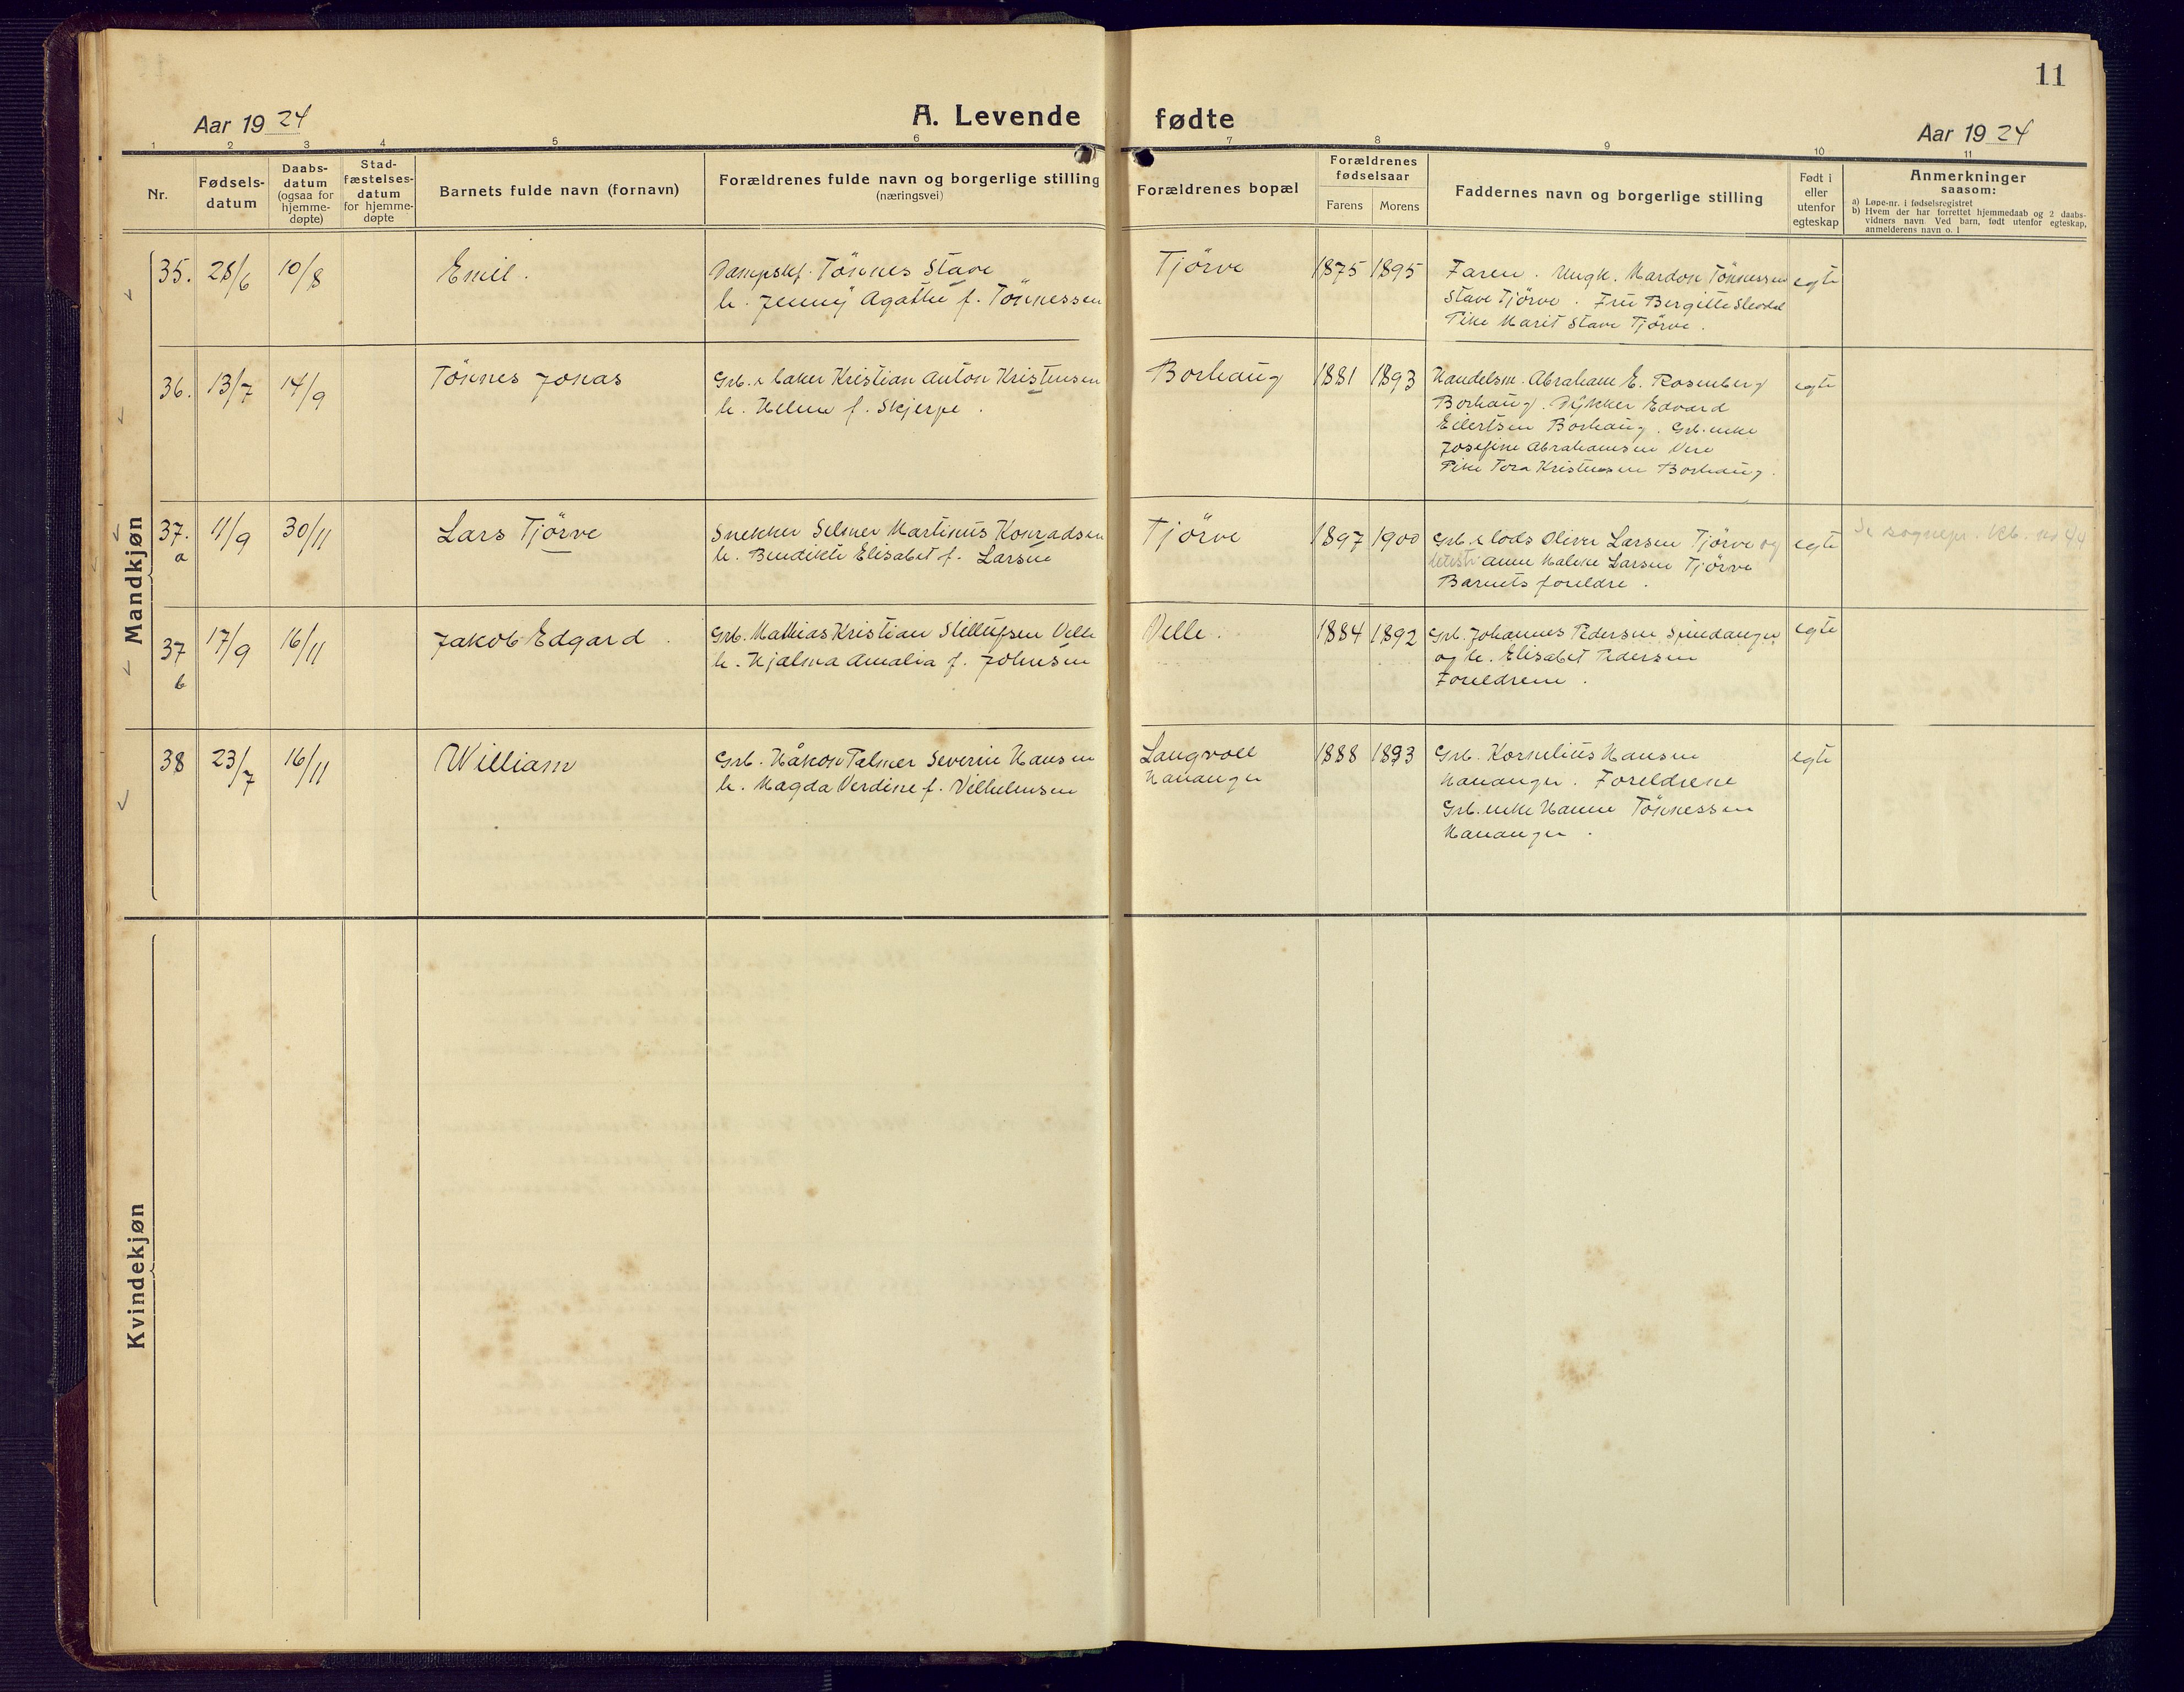 11
Aar 1924
A. Levende fødte
Aar 1924
1 2 3 4 5 6 7 8 9 10 11
Nr.
Fødsels-
datum
Daabs-
datum
(ogsaa for
hjemme-
døpte)
Stad-
fæstelses-
datum
for hjemme-
døpte
Barnets fulde navn (fornavn)
Forældrenes fulde navn og borgerlige stilling
(næringsvei)
Forældrenes bopæl
Forældrenes
fødselsaar
Farens Morens
Faddernes navn og borgerlige stilling
Født i
eller
utenfor
egteskap
Anmerkninger
saasom:
a) Løpe-nr. i fødselsregistret
b) Hvem der har forrettet hjemmedaab og 2 daabs-
vidners navn. Ved barn, født utenfor egteskap,
anmelderens navn o. l
Mandkjøn
35. 28/6 10/8 Emil.
Dampskf. Tönnes Stave
h. Jenny Agathe f. Tönnessen
Tjörve 1875 1895
Faren. Ungk. Mardon Tönnessen
Stave Tjörve. Fru Bergitte
Pike Marit Stave Tjörve.
egte
36. 13/7 14/9 Tönnes Jonas
Grb. & baker Kristian Anton Kristensen
h. Helene f. Skjerpe.
Borhaug 1881 1893
Handelsm. Abraham E. Rosenberg
Borhaug. Dykker Edvard
Eilertsen Borhaug. Grb. enke
Josefine Abrahamsen Vere
Pike Tora Kristensen Borhaug.
egte
37. a 11/9 30/11 Lars Tjörve
Snekker Selmer Martinus Konradsen
h. Bendikte Elisabet f. Larsen
Tjörve 1897 1900
Grb. & lods Oliver Larsen Tjörve og
Anne Malene Larsen Tjörve
Barnets foreldre.
egte
37 b 17/9 16/11 Jakob Edgard.
Grb. Mathias Kristian Stellufsen Velle
h. Hjalma Amalia f. Johnsen
Velle. 1884 1892
Grb. Johannes Pedersen Spindanger
og h. Elisabet Pedersen
Foreldrene.
egte
38 23/7 16/11 William
Grb. Håkon Palmer Severin Hansen
h. Magda Verdine f. Vilhelmsen
Langvoll
Hananger
1888 1893
Grb. Kornelius Hansen
Hananger. Foreldrene
Grb. enke Hanne Tönnessen
Hananger.
egte
Kvindekjøn